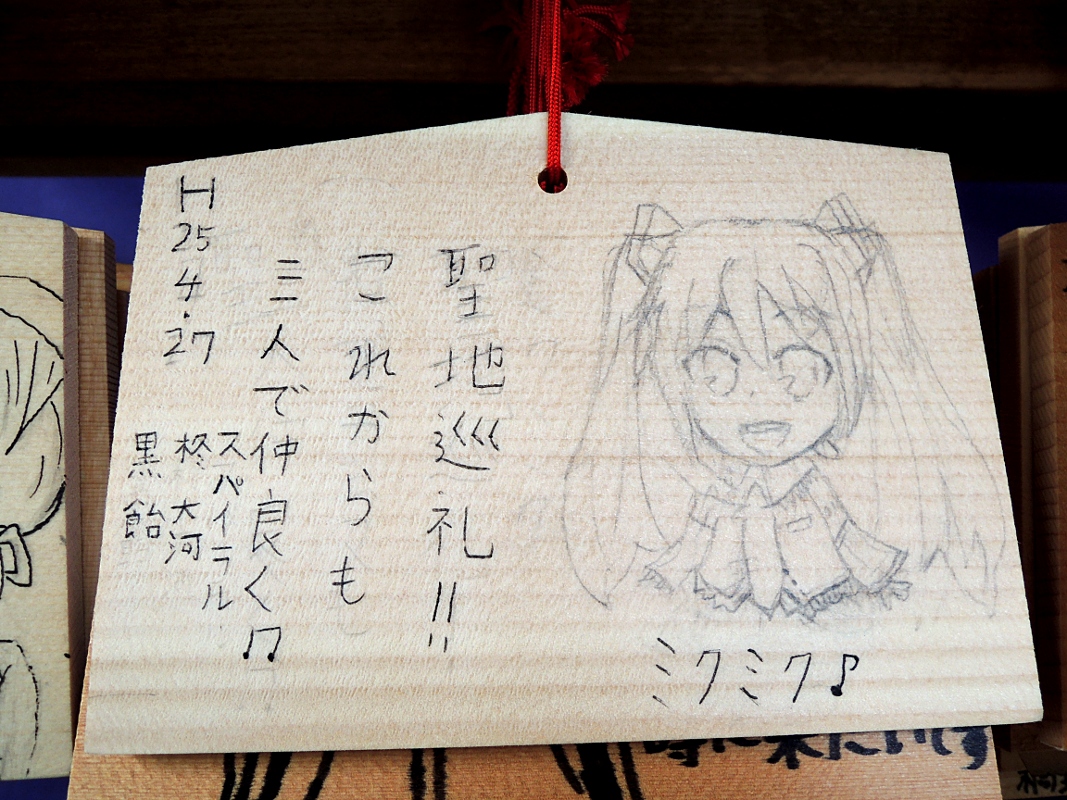 聖地巡礼!!
これからも
三人で仲良く♫
スパイラル
柊 大河
黒飴
H25.4.27
ミクミク♪
時に来たいです